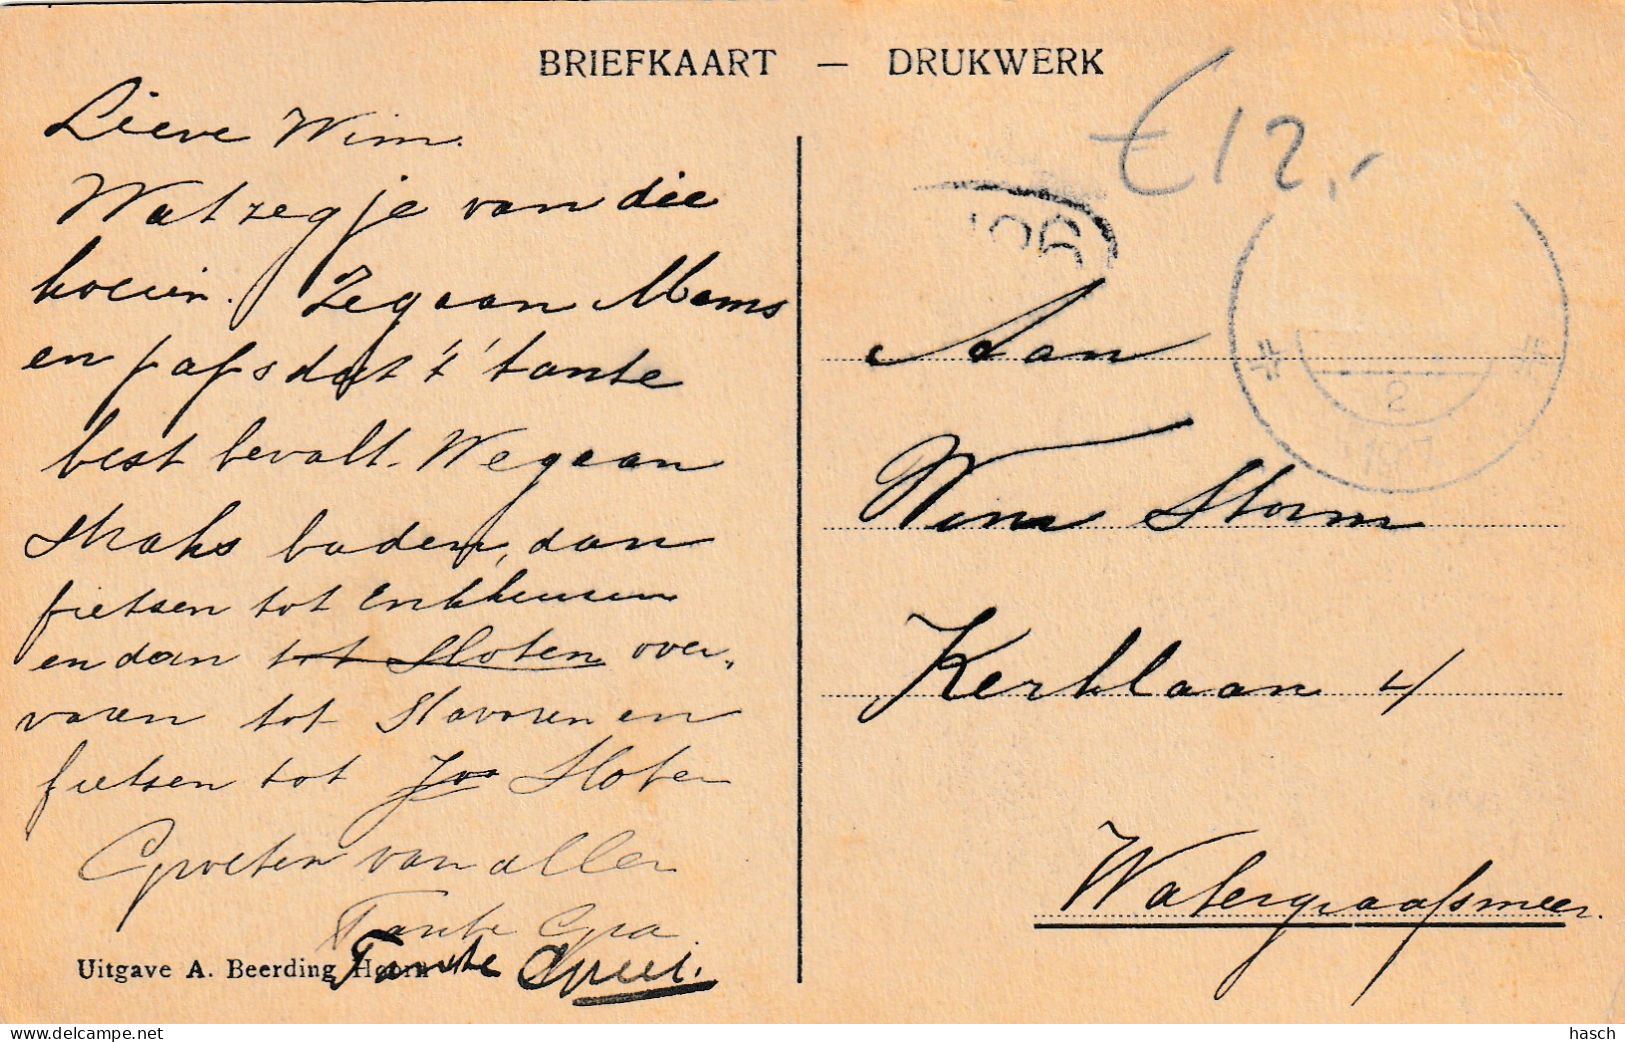 BRIEFKAART — DRUKWERK
Lieve Wim.
Wat zeg je van die
koeien. Zeg aan Mams
en paps dat 't tante
best bevalt. We gaan
straks baden, dan
fietsen tot Enkhuizen
en dan tot Sloten over-
varen tot Stavoren en
fietsen tot Sloten
Groeten van allen
Tante
Tante
Uitgave A. Beerding Hoorn
€ 12,-
Aan
Wim Storm
Kerklaan 4
Watergraafsmeer.
2
www.delcampe.net
hasch